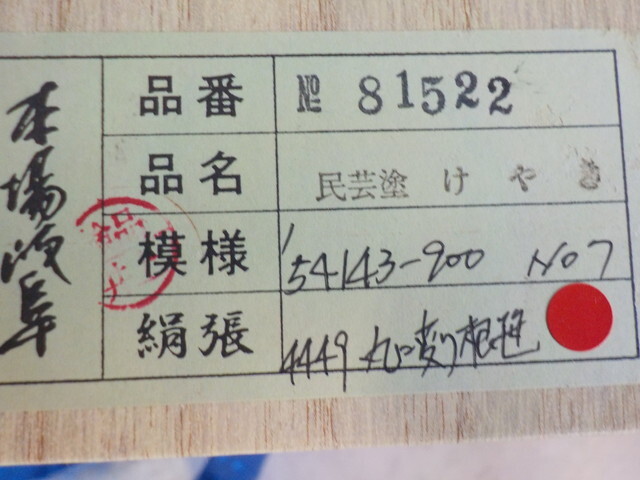 本場岐阜
品番 № 81522
品名 民芸塗 けやき
模様 54143-900 No7
絹張 4449 丸変り根笹